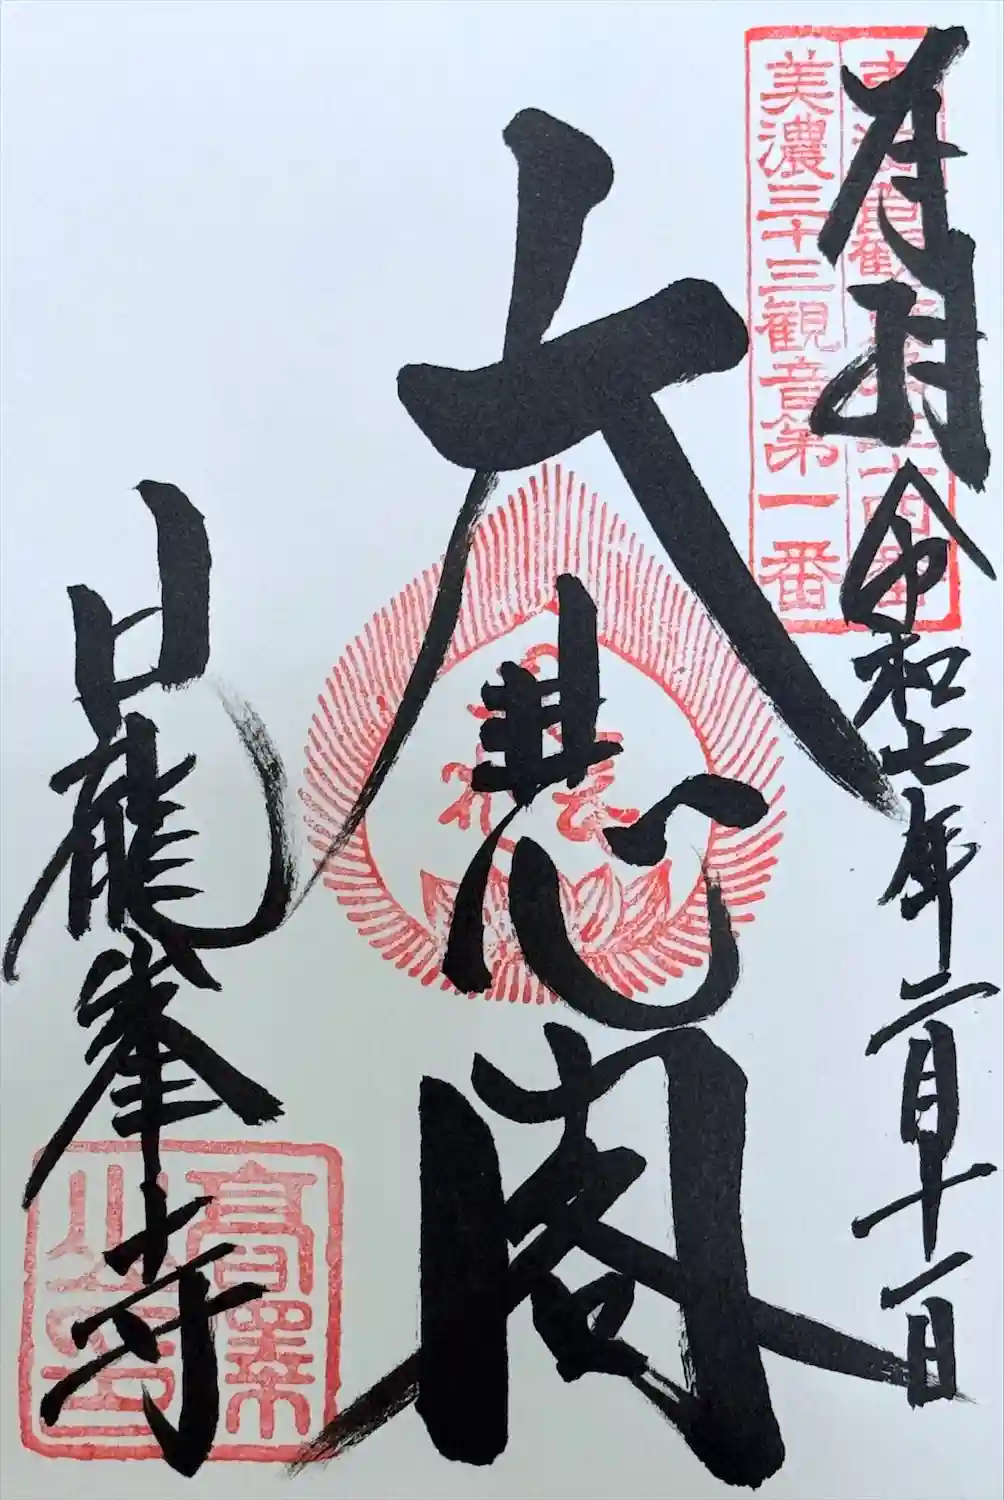 奉拝 令和七年二月十一日
美濃三十三観音第一番
大悲閣
日龍峯寺
高澤